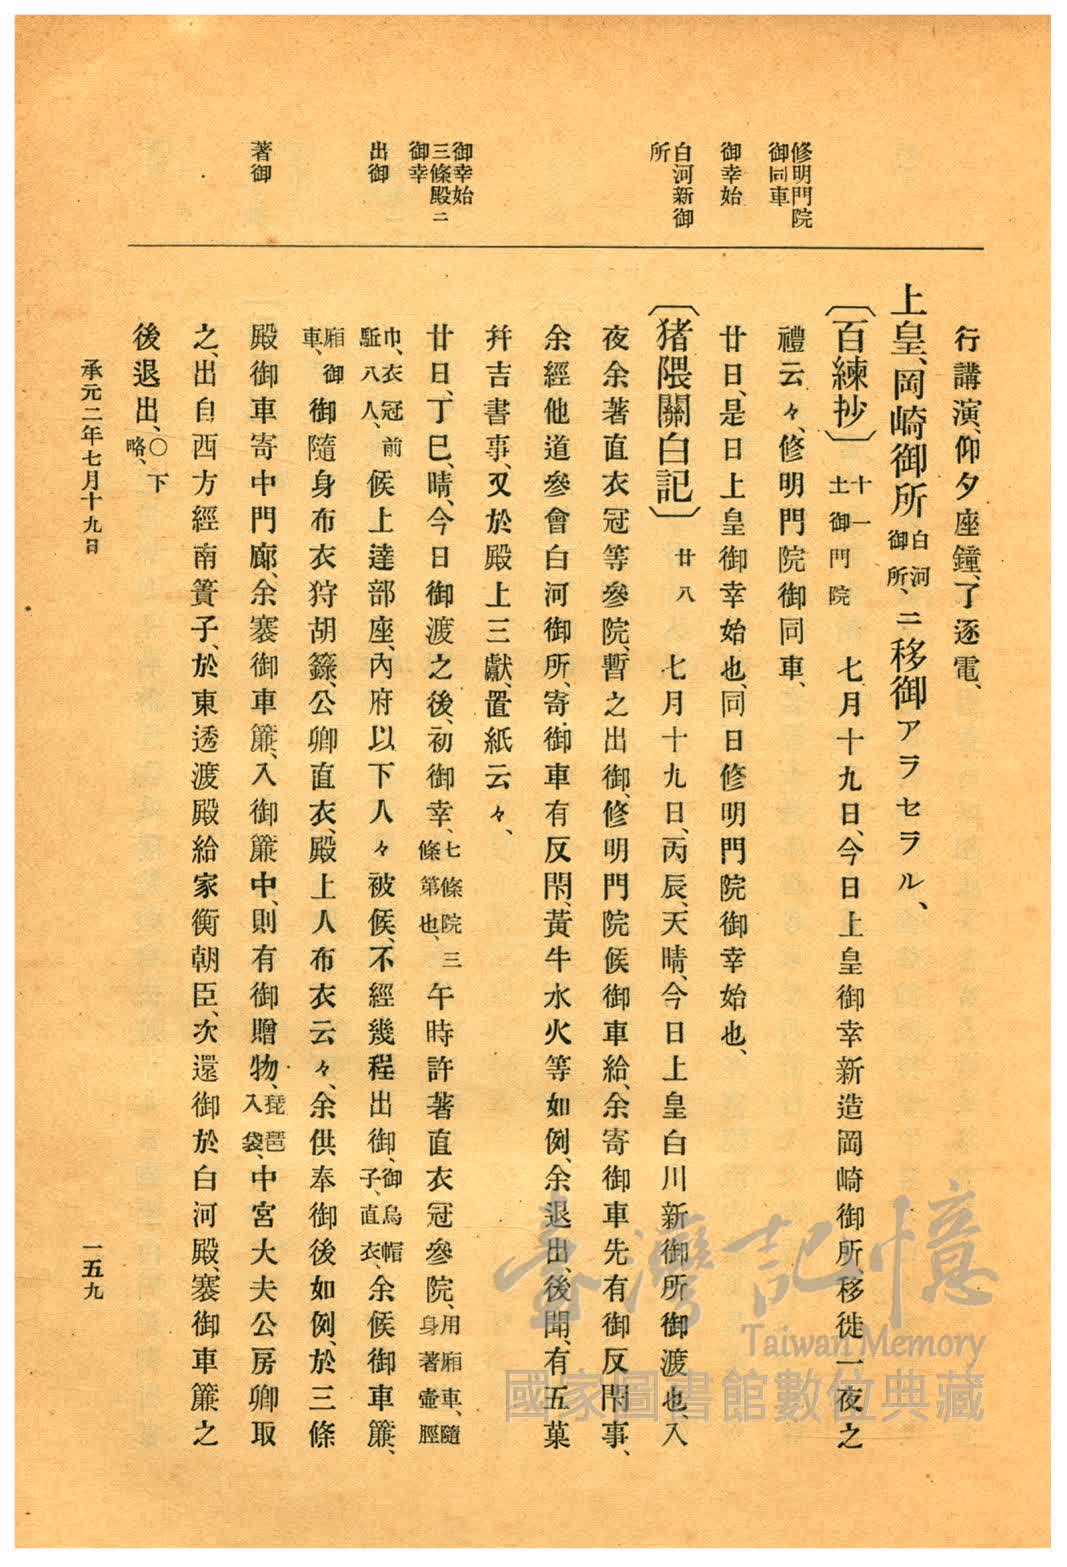 行講演、仰夕座鐘、了逐電、
上皇、岡崎御所白河御所、ニ移御アラセラル、
〔百練抄〕十一土御門院 七月十九日、今日上皇御幸新造岡崎御所、移徙一夜之
禮云々、修明門院御同車、
廿日、是日上皇御幸始也、同日修明門院御幸始也、
〔猪隈關白記〕廿八 七月十九日、丙辰、天晴、今日上皇白川新御所御渡也、入
夜余著直衣冠等參院、暫之出御、修明門院候御車給、余寄御車先有御反閇事、
余經他道參會白河御所、寄御車有反閇、黃牛水火等如例、余退出、後聞、有五菓
幷吉書事、又於殿上三獻、置紙云々、
廿日、丁巳、晴、今日御渡之後、初御幸、七條院三條第也、午時許著直衣冠參院、用廂車、隨身著壷脛
巾、衣冠前駈八人、候上達部座、內府以下人々被候、不經幾程出御、御烏帽子、直衣、余候御車簾、
廂御車、御隨身布衣狩胡籙、公卿直衣、殿上人布衣云々、余供奉御後如例、於三條
殿御車寄中門廊、余褰御車簾、入御簾中、則有御贈物、琵琶入袋、中宮大夫公房卿取
之、出自西方經南簀子、於東透渡殿給家衡朝臣、次還御於白河殿、褰御車簾之
後退出、○下略、
修明門院
御同車
御幸始
白河新御
所
御幸始
三條殿ニ
御幸
出御
著御
承元二年七月十九日
一五九
臺灣記憶
Taiwan Memory
國家圖書館數位典藏